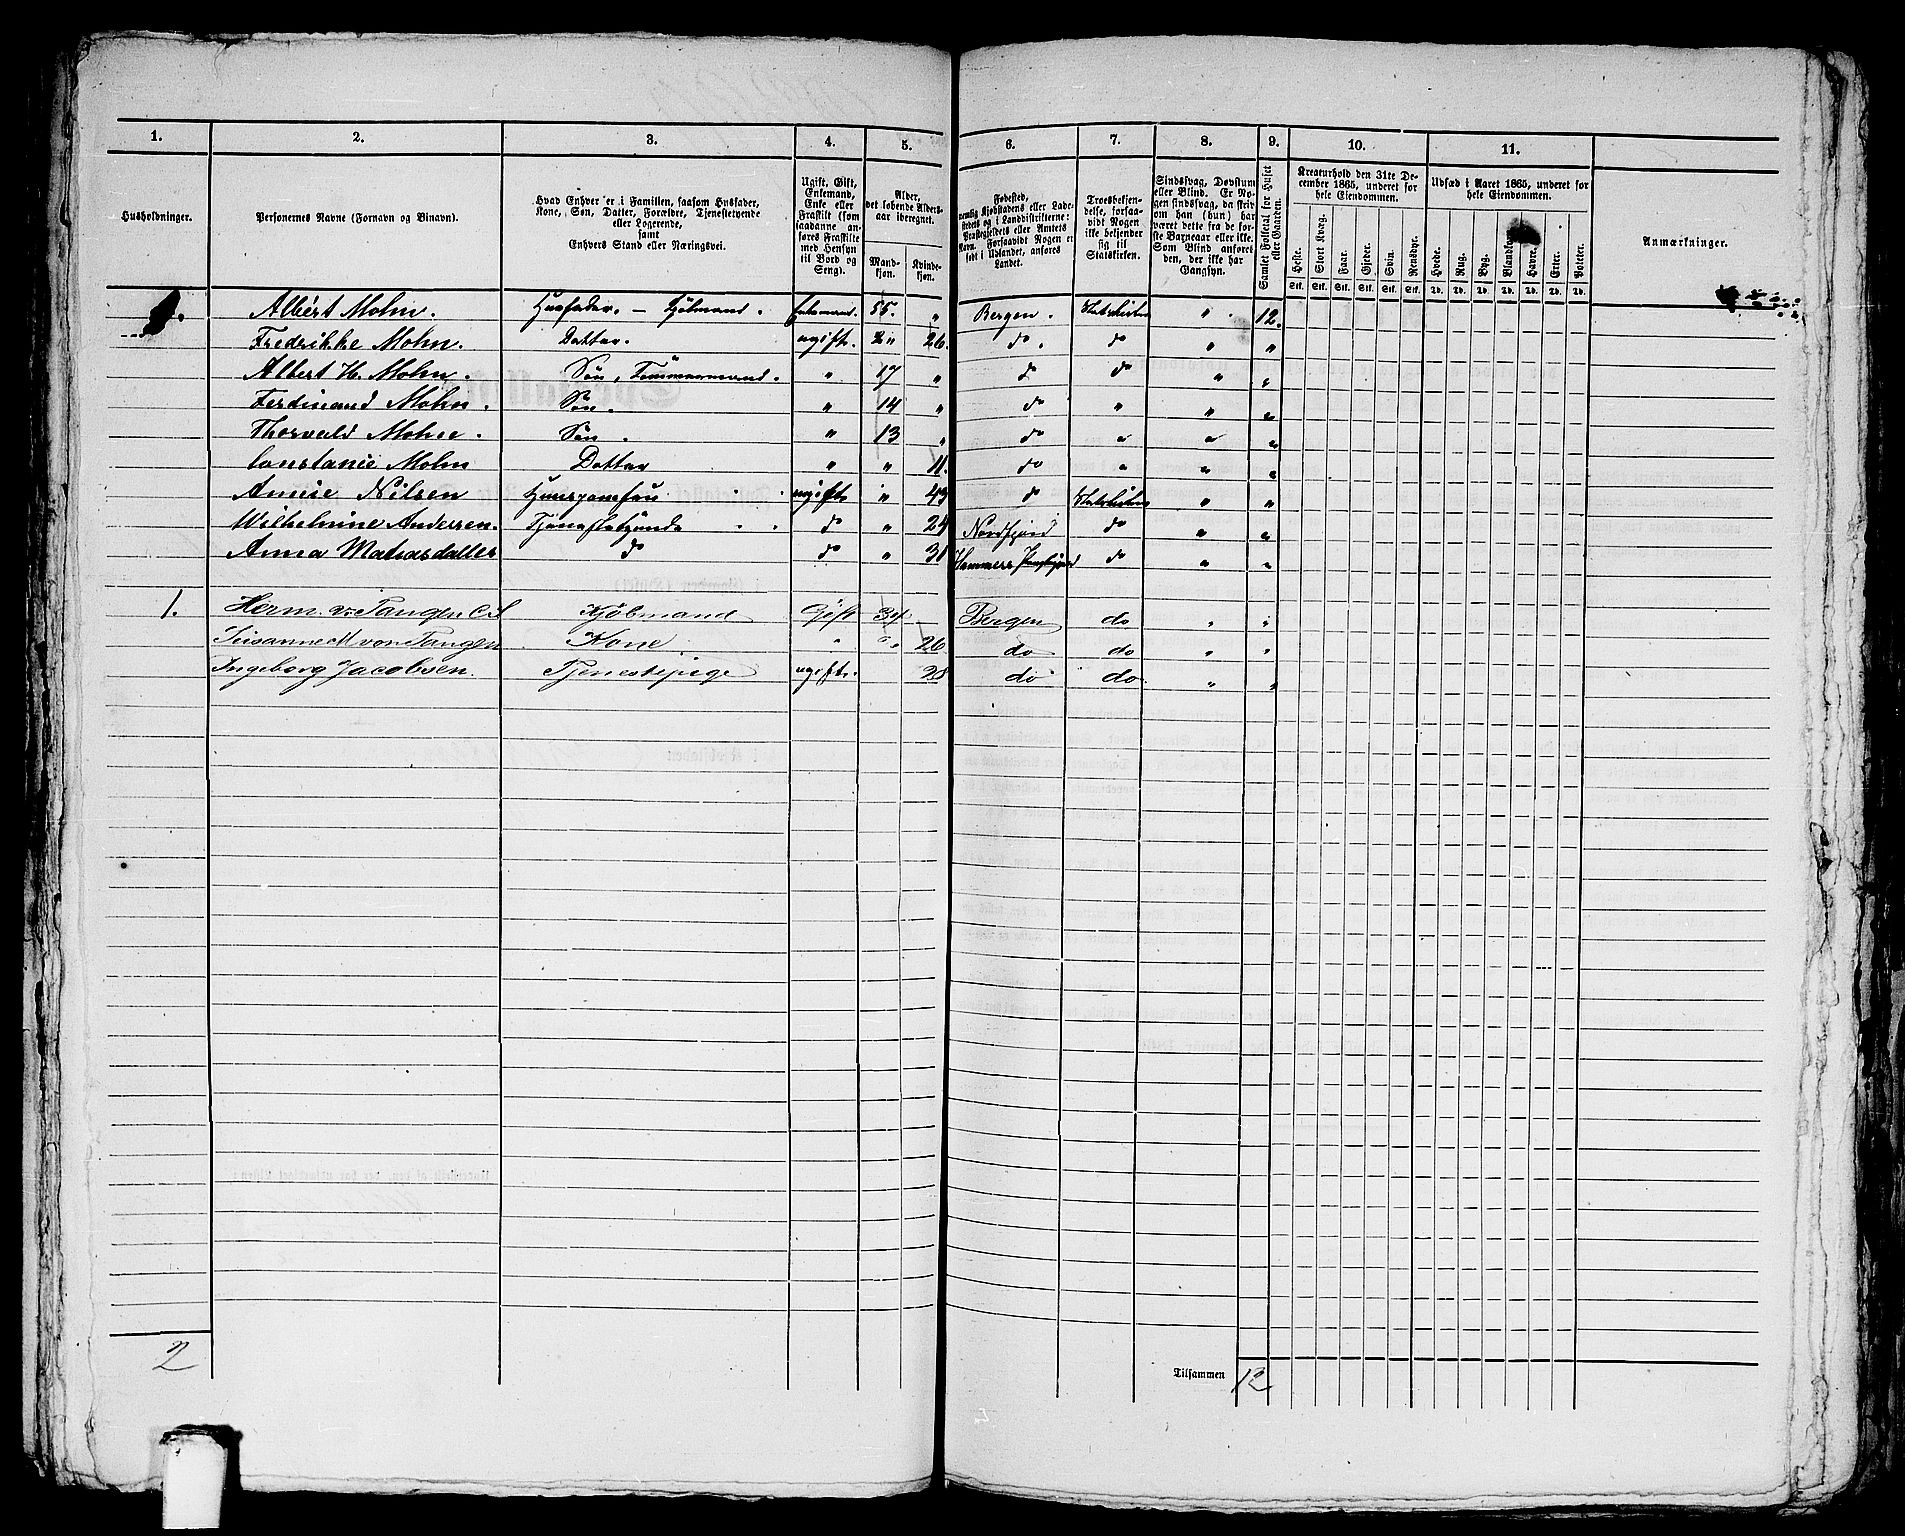 1. 2. 3. 4. 5. 6. 7. 8. 9. 10. 11.
Husholdninger.
Personernes Navne (Fornavn og Binavn).
Hvad Enhver er i Familien, saasom Husfader,
Kone, Søn, Datter, Forældre, Tjenestetyende
eller Logerende,
samt
Enhvers Stand eller Næringsvei.
Ugift, Gift,
Enkemand,
Enke eller
Fraskilt (som
saadanne an-
føres Fraskilte
med Hensyn
til Bord og
Seng).
Alder,
det løbende Alders-
aar iberegnet.
Mand-
kjøn.
Kvinde-
kjøn.
Fødested,
nemlig Kjøbstadens eller Lade-
stedets og i Landdistrikterne:
Præstegjeldets eller Amtets
Navn. Forsaavidt Nogen er
født i Udlandet, anføres
Landet.
Troesbekjen-
delse, forsaa-
vidt Nogen
ikke bekjender
sig til
Statskirken.
Sindssvag, Døvstum
eller Blind. Er No-
gen sindssvag, da skriv
om han (hun) har
været dette fra de før-
ste Barneaar eller ikke.
Som Blind anføres
den, der ikke har
Gangsyn.
Samlet Folketal for Huset
eller Gaarden.
Kreaturhold den 31te De-
cember 1865, underet for
hele Eiendommen.
Heste. Stort Kvæg. Faar. Gjeder. Svin. Rensdyr.
Stk. Stk. Stk. Stk. Stk. Stk.
Udsæd i Aaret 1865, underet for
hele Eiendommen.
Hvede. Rug. Byg. Blandkorn. Havre. Erter. Poteter.
Td. Td. Td. Td. Td. Td. Td.
Anmærkninger.
Albert Mohn. Husfader. - Kjøbmand. Enkemand. 55. " Bergen. Statskirken " 12.
Fredrikke Mohn. Datter. ugift. " 26. do. do " "
Albert H. Mohn. Søn, Tømmermand. " 17 " do do " "
Ferdinand Mohn. Søn. " 14 " do " " "
Thorvald Mohn. Søn. " 13 " do " " "
Constance Mohn Datter " " 11. do " " "
Amise Nilsen Huusjomfru ugift " 43 do Statskirken " "
Wilhelmine Andersen. Tjenestetyende do " 24 Nordfjord do " "
Anna do do " 31 Hammers do " "
1. Herm. v. Tangen Kjøbmand Gift 34 " Bergen do " "
Susanne M. von Tangen Kone " " 26 do do " "
Ingeborg Jacobsen. Tjenestepige ugift. 28 do do " "
2
Tilsammen 12